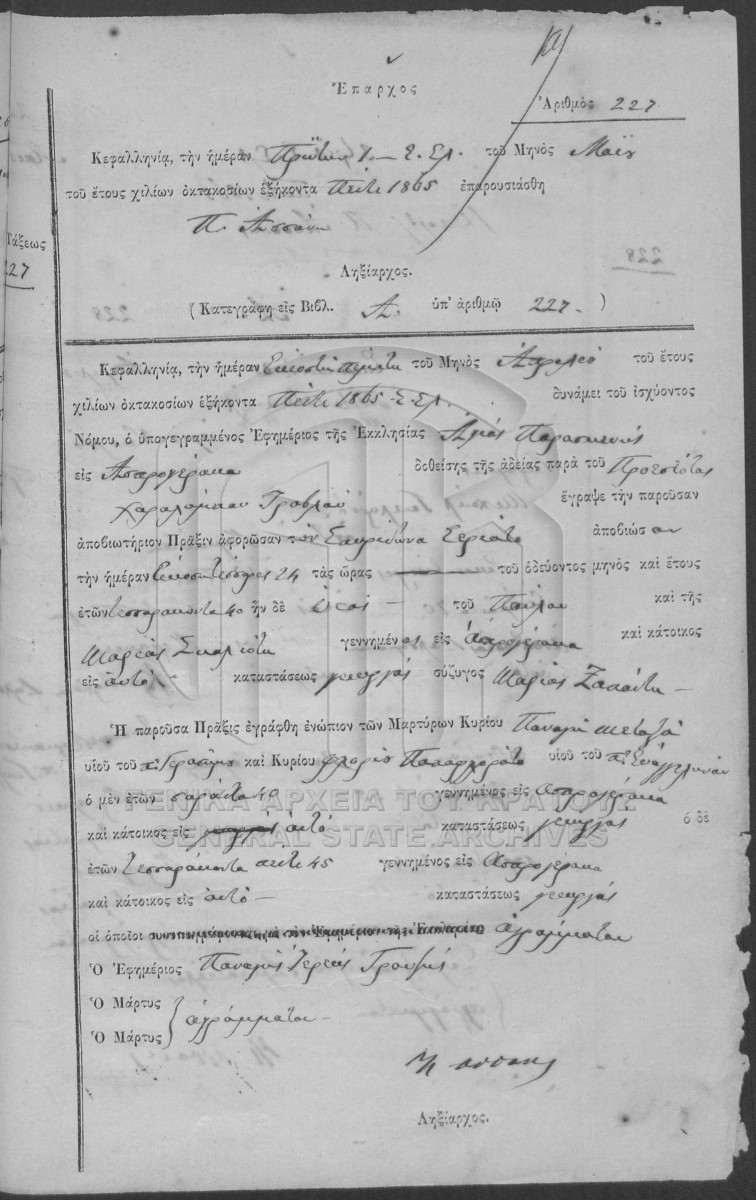 Ἔπαρχος
Ἀριθμὸς 227
Κεφαλληνίᾳ, τὴν ἡμέραν Πρώτην 1 — Ε. Ελ. τοῦ Μηνὸς Μαΐου
τοῦ ἔτους χιλίων ὀκτακοσίων ἑξήκοντα Πέντε 1865 ἐπαρουσιάσθη
Π.
Ληξίαρχος.
(Κατεγράφη εἰς Βιβλ. Α. ὑπ' ἀριθμῷ 227 — )
Τάξεως
227
228
Κεφαλληνίᾳ, τὴν ἡμέραν Εἰκοστὴν πέμπτην τοῦ Μηνὸς Ἀπριλίου τοῦ ἔτους
χιλίων ὀκτακοσίων ἑξήκοντα Πέντε 1865 Ε. Ελ. δυνάμει τοῦ ἰσχύοντος
Νόμου, ὁ ὑπογεγραμμένος Ἐφημέριος τῆς Ἐκκλησίας Ἁγίας Παρασκευῆς
εἰς Ἀσπρογέρακα δοθείσης τῆς ἀδείας παρὰ τοῦ Προεστῶτος
Χαραλάμπου ἔγραψε τὴν παροῦσαν
ἀποβιωτήριον Πρᾶξιν ἀφορῶσαν τὸν Σπυρίδωνα ἀποβιώσαν
τὴν ἡμέραν Εἰκοστὴ τέσσαρες 24 τὰς ὥρας — τοῦ ὁδεύοντος μηνὸς καὶ ἔτους
ἐτῶν τεσσαράκοντα 40 ἦν δὲ υἱὸς — τοῦ Παύλου καὶ τῆς
Μαρίας γεννημένος εἰς Ἀσπρογέρακα καὶ κάτοικος
εἰς αὐτό. καταστάσεως γεωργὸς σύζυγος Μαρίας —
Ἡ παροῦσα Πρᾶξις ἐγράφθη ἐνώπιον τῶν Μαρτύρων Κυρίου Παναγῆ Μεταξᾶ
υἱοῦ τοῦ π. Γερασίμου καὶ Κυρίου Φλωρῆς υἱοῦ τοῦ π.
ὁ μὲν ἐτῶν σαράντα 40 γεννημένος εἰς Ἀσπρογέρακα
καὶ κάτοικος εἰς αὐτό καταστάσεως γεωργὸς ὁ δὲ
ἐτῶν Τεσσαράκοντα πέντε 45 γεννημένος εἰς Ἀσπρογέρακα
καὶ κάτοικος εἰς αὐτό — καταστάσεως γεωργός
οἱ ὁποῖοι ἀγράμματοι
Ὁ Ἐφημέριος Παναγῆς Ἱερεὺς
Ὁ Μάρτυς
Ὁ Μάρτυς
ἀγράμματοι —
Ληξίαρχος.
ΓΕΝΙΚΑ ΑΡΧΕΙΑ ΤΟΥ ΚΡΑΤΟΥΣ
GENERAL STATE ARCHIVES